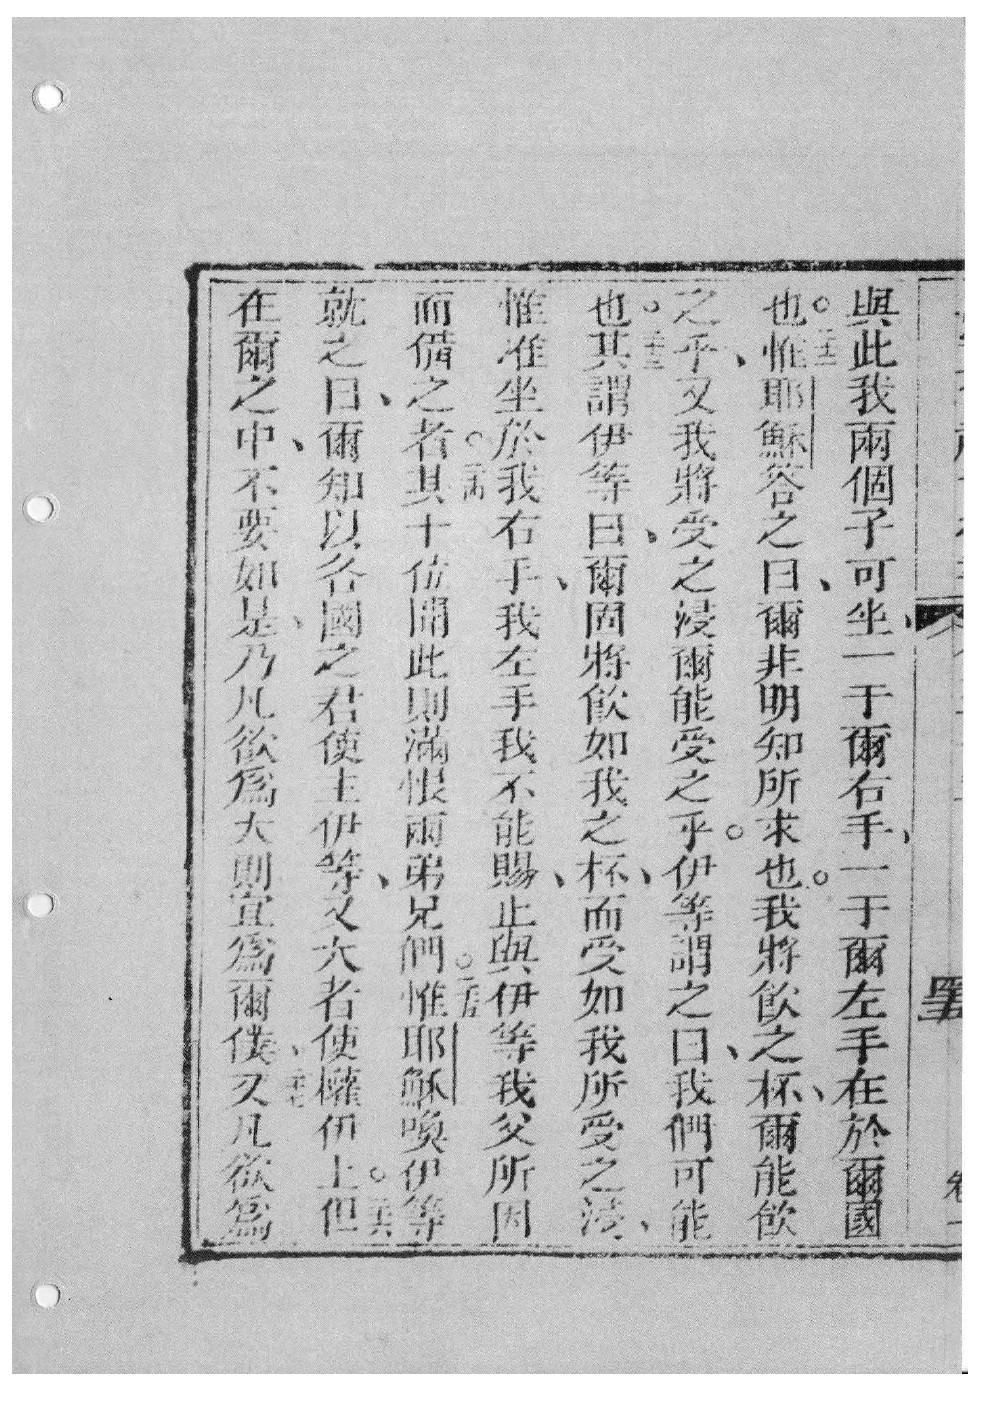 與此我兩個子可坐一于爾右手、一于爾左手在於爾國
也。二十二惟耶穌答之曰、爾非明知所求也。我將飲之杯、爾能飲
之乎、又我將受之浸爾能受之乎。伊等謂之曰、我們可能
也。二十三其謂伊等曰、爾固將飲如我之杯、而受如我所受之浸、
惟准坐於我右手、我左手我不能賜、止與伊等我父所因
而備之者。二十四其十位聞此則滿恨兩弟兄們。二十五惟耶穌喚伊等
就之曰、爾知以各國之君使主伊等、又大者使權伊上。二十六但
在爾之中、不要如是、乃凡欲為大則宜為爾僕、二十七又凡欲為